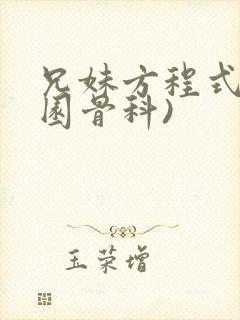 兄妹方程式
园骨科)
玉荣增